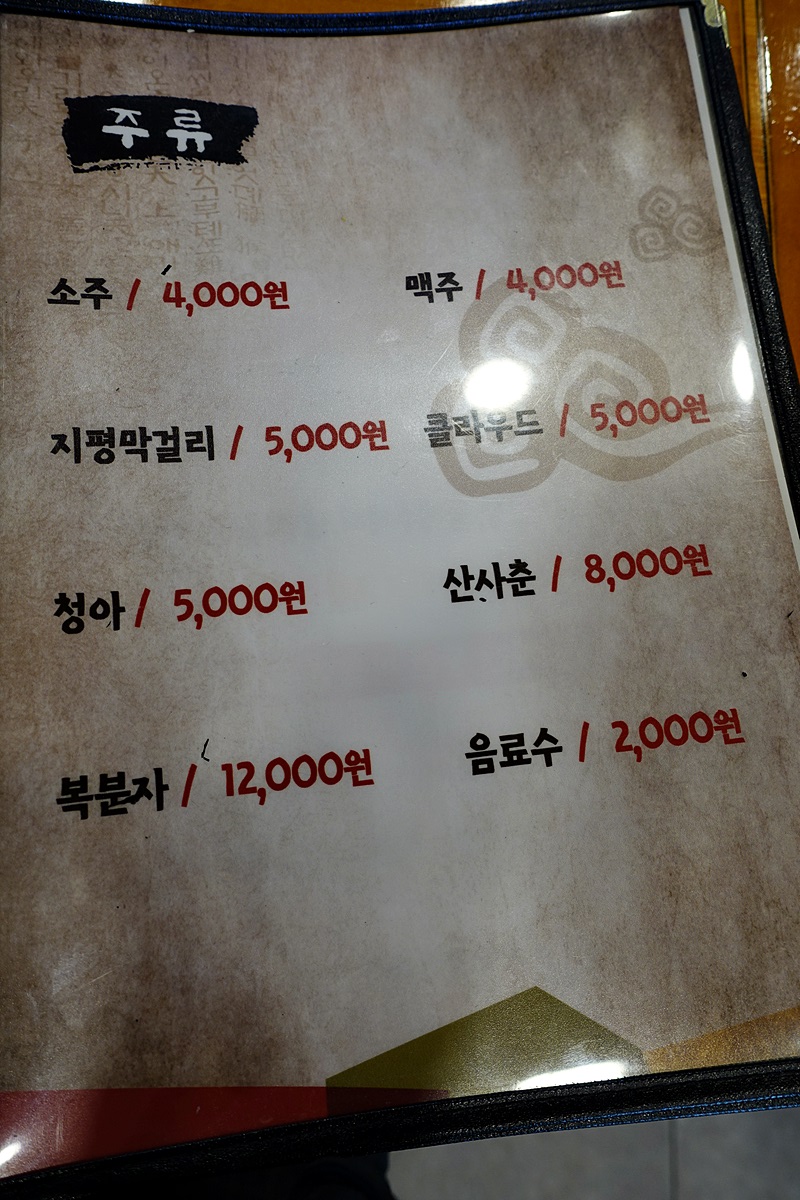 주류
소주 / 4,000원
맥주 / 4,000원
지평막걸리 / 5,000원
클라우드 / 5,000원
청아 / 5,000원
산사춘 / 8,000원
복분자 / 12,000원
음료수 / 2,000원